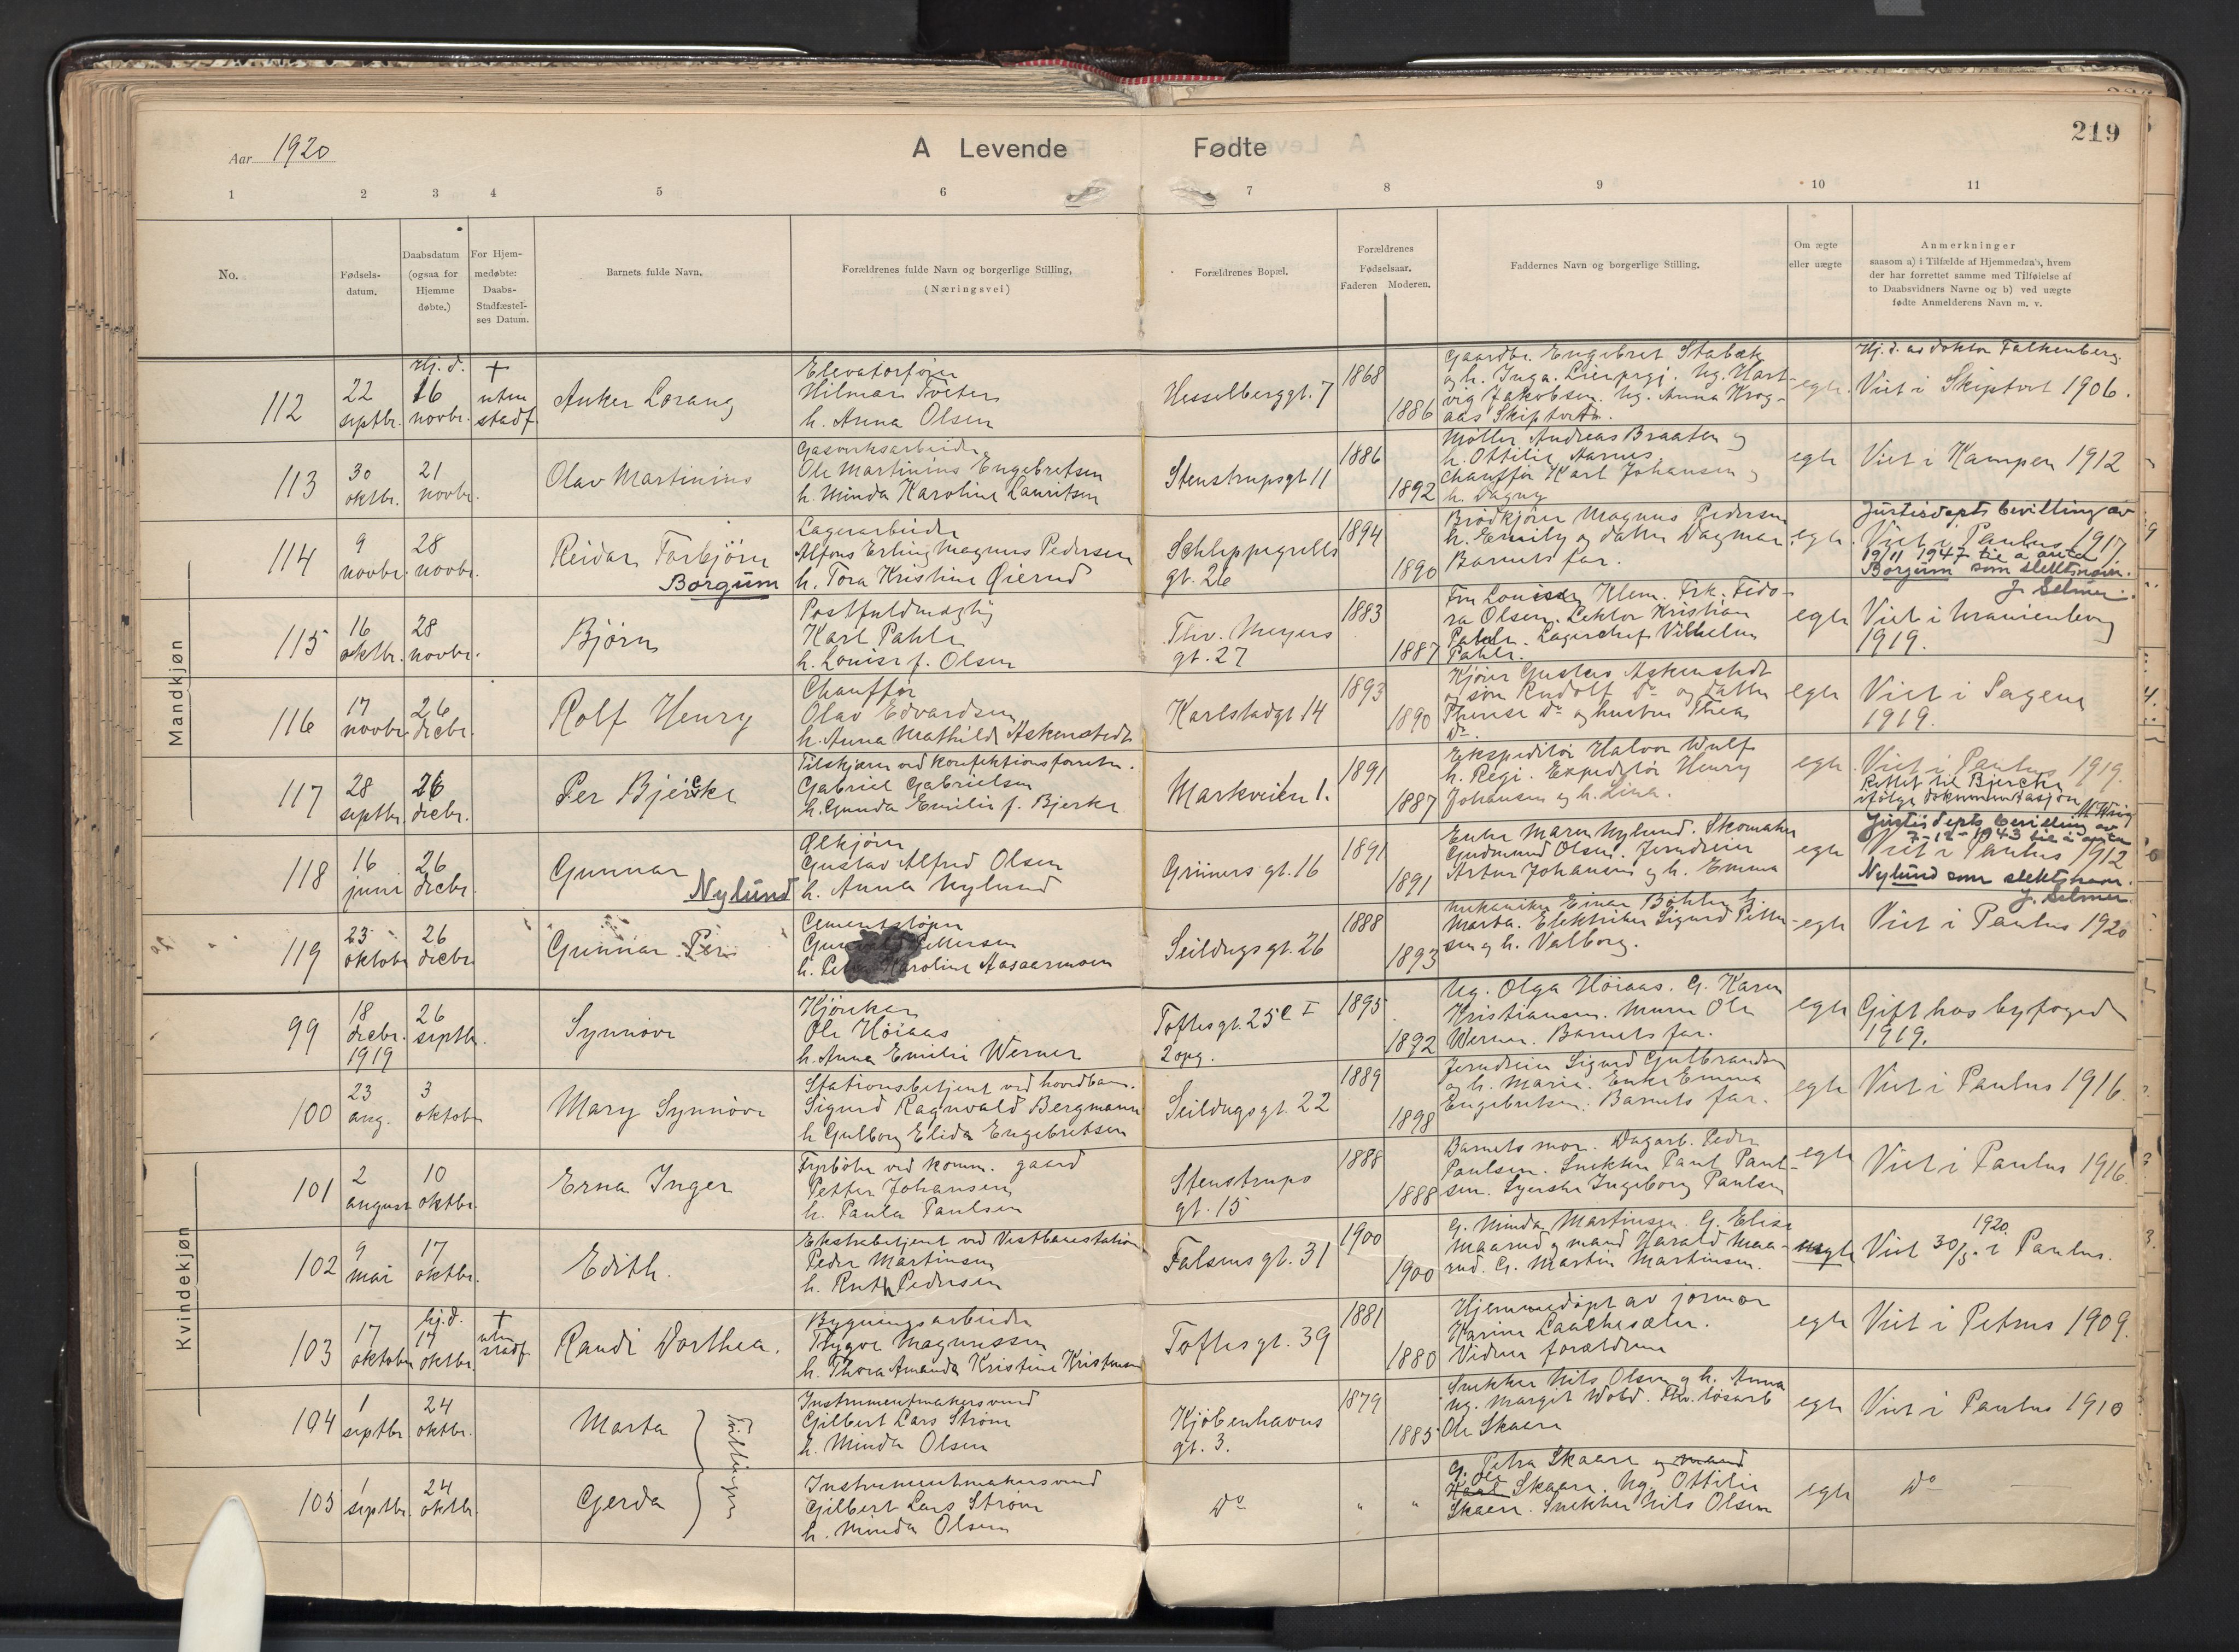 Aar 1920
A Levende Fødte
219
1 2 3 4 5 6 7 8 9 10 11
No.
Fødsels-
datum.
Daabsdatum
(ogsaa for
Hjemme
døbte.)
For Hjem-
medøbte:
Daabs-
Stadfæstel-
ses Datum.
Barnets fulde Navn.
Forældrenes fulde Navn og borgerlige Stilling.
(Næringsvei)
Forældrenes Bopæl.
Forældrenes
Fødselsaar.
Faderen Moderen.
Faddernes Navn og borgerlige Stilling.
Om ægte
eller uægte
Anmerkninger
saasom a) i Tilfælde af Hjemmedaab, hvem
der har forrettet samme med Tilføielse af
to Daabsvidners Navne og b) ved uægte
fødte Anmelderens Navn m. v.
Mandkjøn
112
22
septbr.
Hj. d.
16
novbr.
+
uten
stadf.
Anker Lorang
Elevatorfører
Hilmar Tveter
h. Anna Olsen
Hesselberggt. 7
1868
1886
Gaardbr. Engebret Stabæk
og h. Inga. Ug. Hart-
vig Jakobsen. Ug. Anna Krog-
aas Skiptvet.
egte.
Hj. d. av doktor Falkenberg.
Viet i Skiptvet 1906.
113
30
oktbr.
21
novbr.
Olav Martinius
Gasverksarbeider
Ole Martinius Engebretsen
h. Minda Karoline Lauritsen
Stenstrupsgt 11
1886
1892
Møller Andreas Braaten og
h. Ottilie Aarnes.
Chauffør Karl Johansen og
h. Dagny
egte
Viet i Kampen 1912
114
9
novbr.
28
novbr.
Reidar Torbjörn
Borgum
Lagerarbeider
Alfons Erling Magnus Pedersen
h. Tora Kristine Øierud
Schleppegrells
gt. 26
1894
1890
Brödkjörer Magnus Pedersen
h. Emily og datter Dagmar.
Barnets far.
egte.
Justisdepts bevilling av
Viet i Paulus 1917
19/11 1947 til å anta
Borgum som slektsnavn.
J. Selmer.
115
16
oktbr.
28
novbr.
Björn
Postfuldmægtig
Karl Pahle
h. Louise f. Olsen
Thv. Meyers
gt. 27
1883
1887
Fru Klem. Frk. Fedo-
ra Olsen. Lektor Kristian
Pahle. Lagerchef Vilhelm
Pahle.
egte
Viet i Uranienborg
1919.
116
17
novbr.
26
decbr.
Rolf Henry
Chauffør
Olav Edvardsen
h. Anna Mathilde Askenstedt
Karlstadgt 14
1893
1890
Kjører Gustav Askenstedt
og søn Rudolf do og datter
Therese do og hustru Thea
do.
egte
Viet i Sagene
1919.
117
28
septbr.
26
decbr.
Per Bjercke
Tilskjærer ved konfektionsforretn.
Gabriel Gabrielsen
h. Gunda Emilie f. Bjerke
Markveien 1.
1891
1887
Ekspeditør Halvor Wulf
h. Regi. Expeditør Henry
Johansen og h. Lina.
egte.
Viet i Paulus 1919.
Rettet til Bjercke
ifølge dokumentasjon
118
16
juni
26
decbr.
Gunnar
Nylund
Ølkjörer
Gustav Alfred Olsen
h. Anna Nylund
Grüners gt. 16
1891
1891
Enke Maren Nylund. Skomaker
Gudmund Olsen. Jerndreier
Artur Johansen og h. Emma
egte
Justisdepts bevilling av
7-12-1943 til å anta
Viet i Paulus 1912
Nylund som slektsnavn.
J. Selmer.
119
23
oktober
26
decbr.
Gunnar Per
Cementstøper
Pettersen
h. Karoline Aasaarmoen
Seildugsgt. 26
1888
1893
Mekaniker Einar Böhler h.
Marta. Elektriker Sigurd Petter-
sen og h. Valborg.
egte
Viet i Paulus 1920
Kvindekjøn
99
18
decbr.
1919
26
septbr.
Synnöve
Kjörekar
Ole Höiaas
h. Anna Emilie Werner
Toftesgt. 25c I
2 opg.
1895
1892
Ug. Olga Höiaas. G. Karen
Kristiansen. Murer Ole
Werner. Barnets far.
egte
Gift hos byfoged
1919.
100
23
aug.
3
oktober
Mary Synnöve
Stationsbetjent ved hovedban.
Sigurd Ragnvald Bergmann
h Gulborg Elida Engebretsen
Seildugsgt. 22
1889
1898
Jerndreier Sigurd Gulbrandsen
og h. Marie. Enke Emma
Engebretsen. Barnets far.
egte
Viet i Paulus 1916.
101
2
august
10
oktbr.
Erna Inger
Fyrböter ved komm. gaard
Petter Johansen
h. Paula Paulsen
Stenstrups
gt. 15
1888
1888
Barnets mor. Dagarb. Peder
Paulsen. Snekker Paul Paul-
sen. Syerske Ingeborg Paulsen
egte
Viet i Paulus 1916.
102
9
mai
17
oktbr.
Edith.
Ekstrabetjent ved Vestbanestation
Peder Martinsen
h. Ruth Pedersen
Falsens gt. 31
1900
1900
G. Minda Martinsen. G. Elise
Maarud og mand Harald Maa-
rud. G. Martin Martinsen.
uegte
Viet 30/5. 1920. i Paulus.
103
17
oktober
hj.d.
17
oktbr.
+
uten
stadf.
Randi Dorthea.
Bygningsarbeider
Trygve Magnussen
h. Thora Amanda Kristine Kristensen
Toftesgt. 39
1881
1880
Hjemmedöpt av jormor
Karine Laachesæter.
Vidner forældrene
egte
Viet i Petrus 1909.
104
1
septbr
24
oktbr.
Marta
Tvillinger
Instrumentmakersvend
Gilbert Lars Ström
h. Minda Olsen
Kjöbenhavns
gt. 3.
1879
1885
Snekker Nils Olsen og h. Anna
Ug. Margit Wold. Thv. lösarb
Ole Skaare
egte
Viet i Paulus 1910
105
1
septbr.
24
oktbr.
Gerda
Instrumentmakersvend
Gilbert Lars Ström
h. Minda Olsen
Do
" "
G. Petra Skaare og mand
Ole
Karl Skaare. Ug. Ottilie
Skaare. Snekker Nils Olsen
egte
Do —